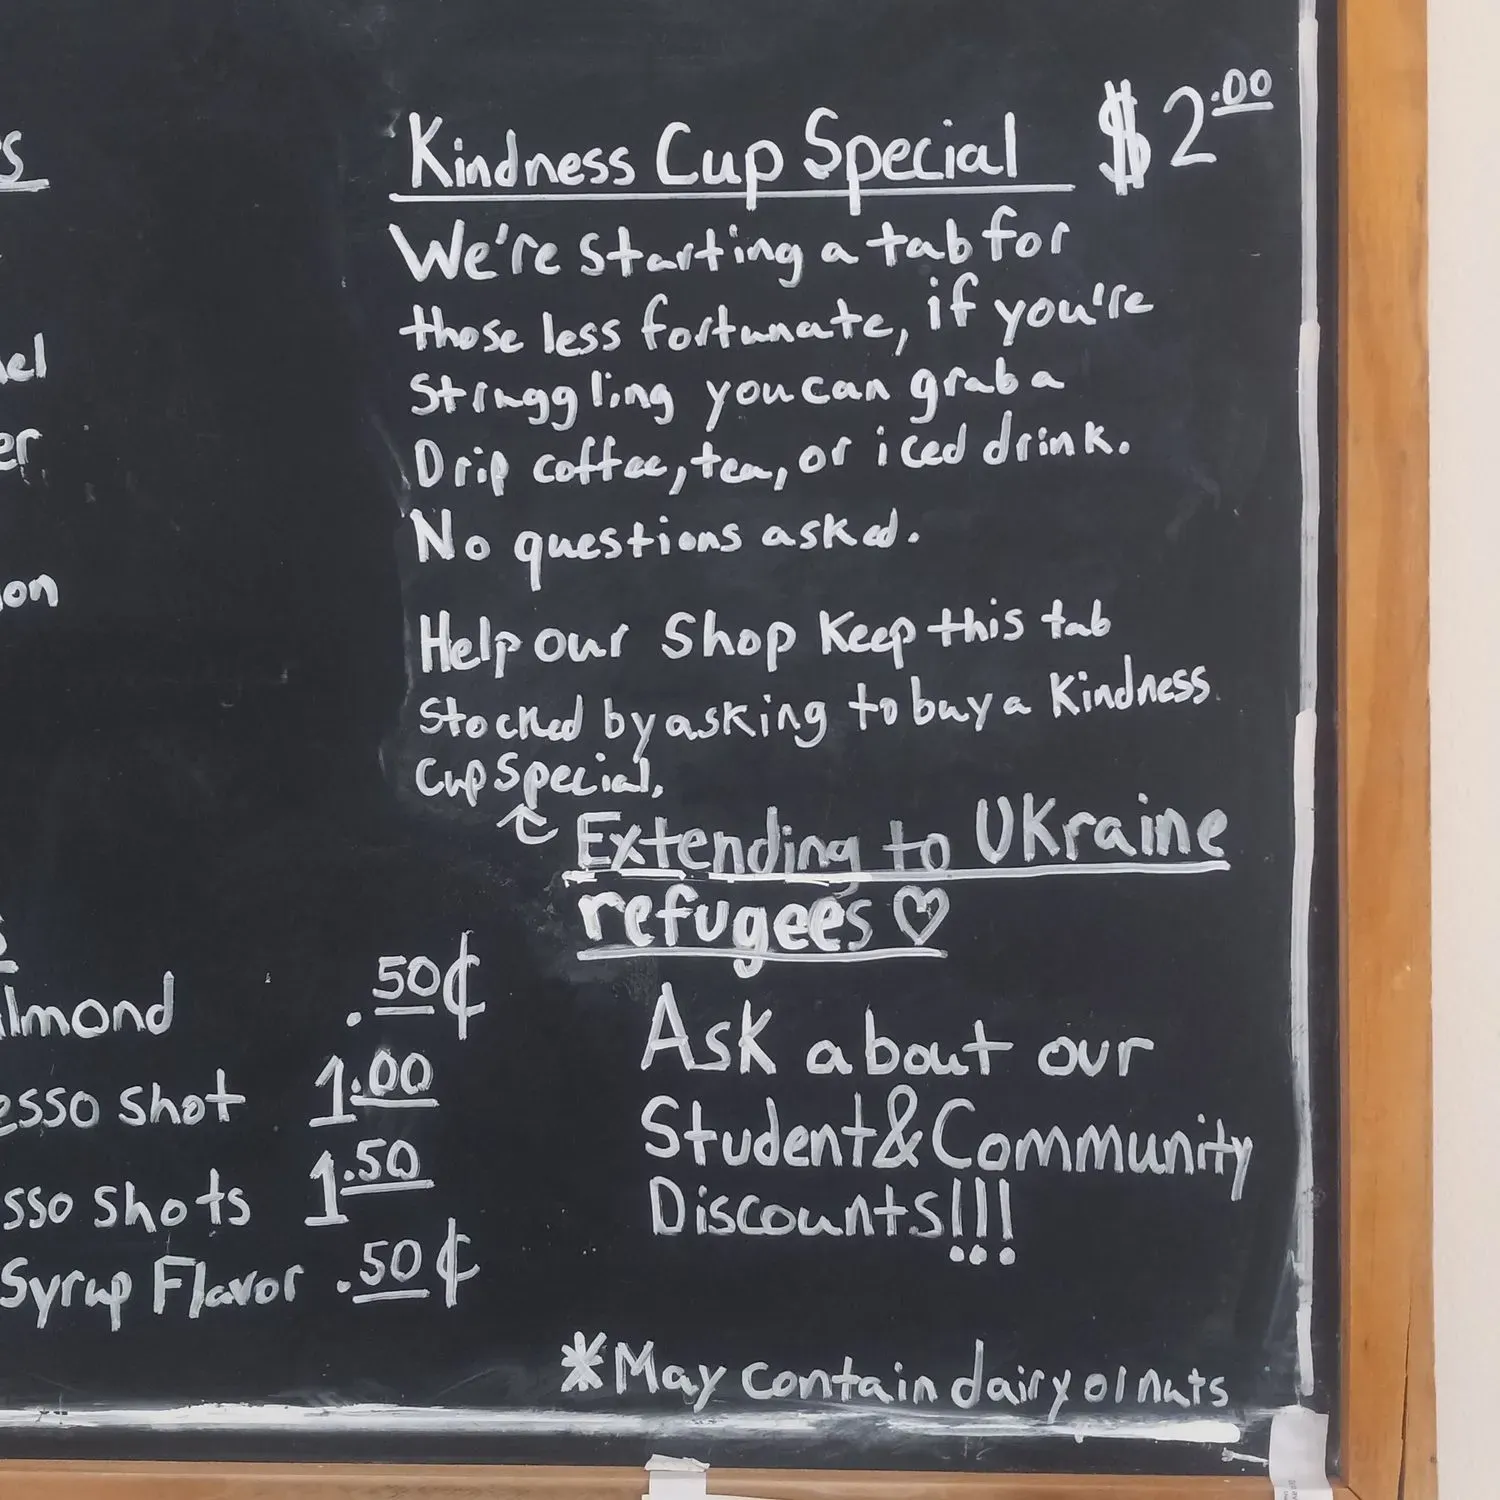 Kindness Cup Special $2.00
We're starting a tab for
those less fortunate, if you're
struggling you can grab a
Drip coffee, tea, or iced drink.
No questions asked.
Help our Shop Keep this tab
stocked by asking to buy a Kindness
Cup Special.
Extending to Ukraine
refugees ♡
Ask about our
Student & Community
Discounts!!!
*May contain dairy or nuts
s
nel
er
on
lmond .50¢
esso shot 1.00
sso shots 1.50
Syrup Flavor .50¢